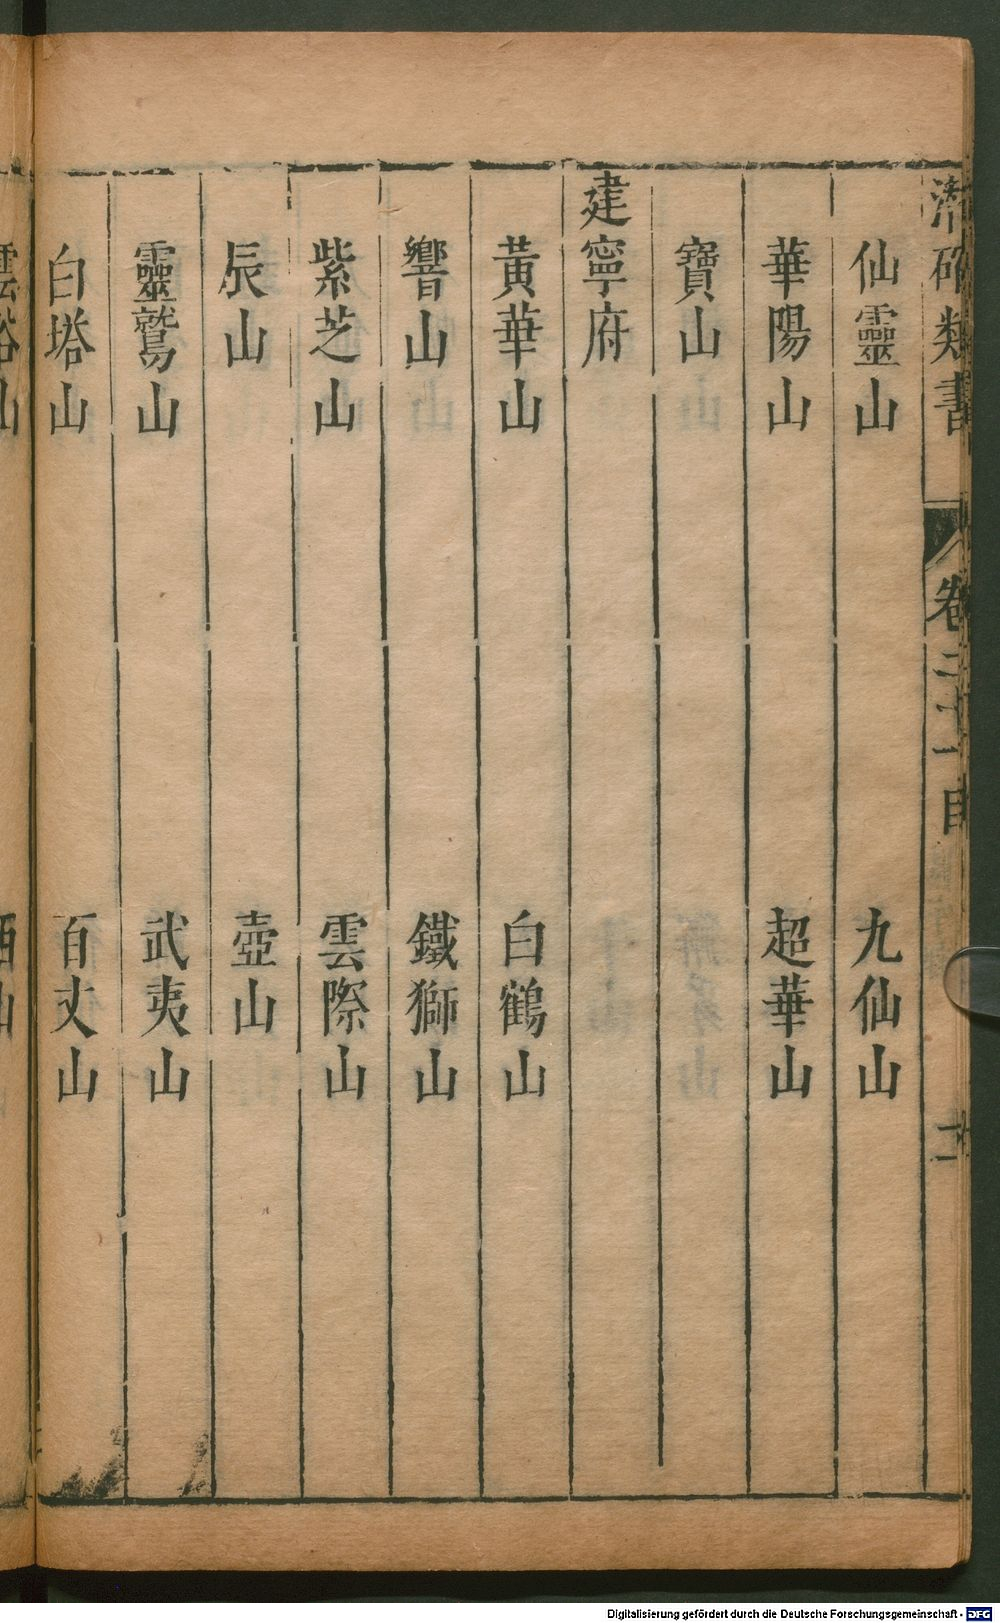 潛确類書 卷二十一目 十一
仙靈山 九仙山
華陽山 超華山
寶山
建寧府
黃華山 白鶴山
響山 鐵獅山
紫芝山 雲際山
辰山 壺山
靈鷲山 武夷山
白塔山 百丈山
Digitalisierung gefördert durch die Deutsche Forschungsgemeinschaft - DFG